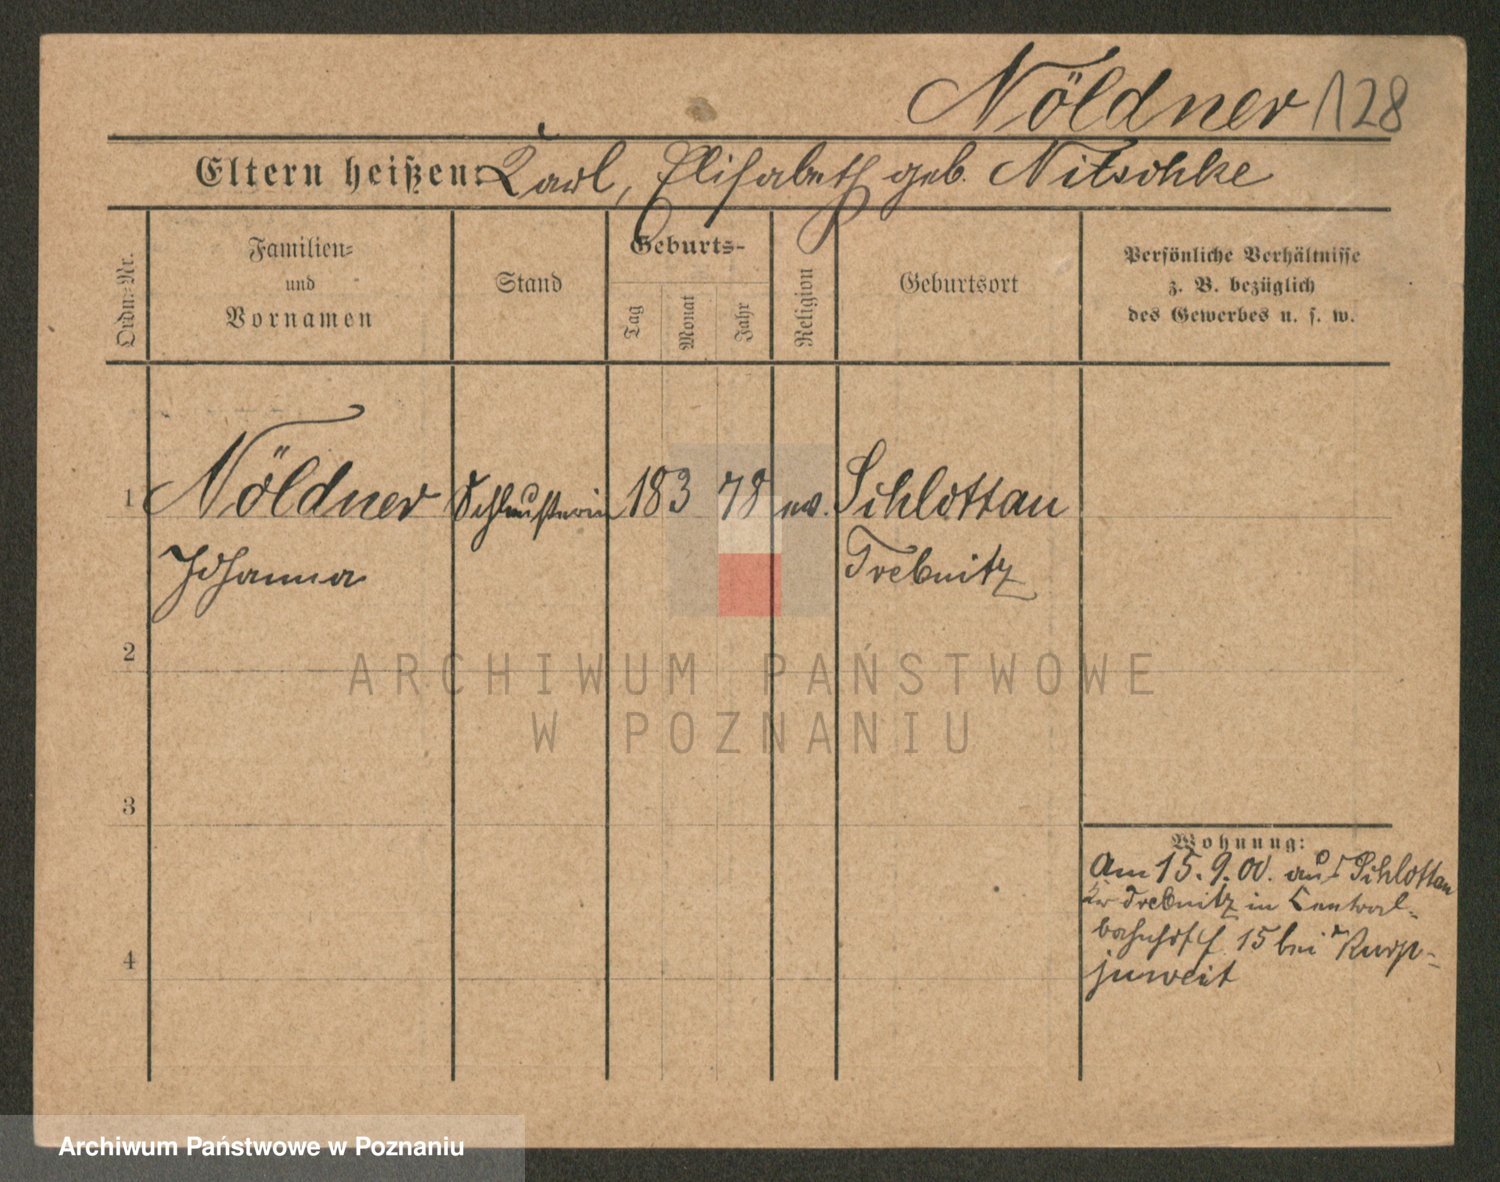 Nöldner 128
Eltern heißen: Karl, Elisabeth geb. Nitschke
Ordn.-Nr.
Familien-
und
Vornamen
Stand
Geburts-
Tag
Monat
Jahr
Religion
Geburtsort
Persönliche Verhältnisse
z. B. bezüglich
des Gewerbes u. s. w.
1 Nöldner 18 3 78 ev. Schlottau
Johanna Trebnitz
2
ARCHIWUM PAŃSTWOWE
W POZNANIU
3
Wohnung:
Am 15.9.00. aus Schlottau
Kr Trebnitz in Central-
bahnhof 15 bei Kurp-
juweit
4
Archiwum Państwowe w Poznaniu